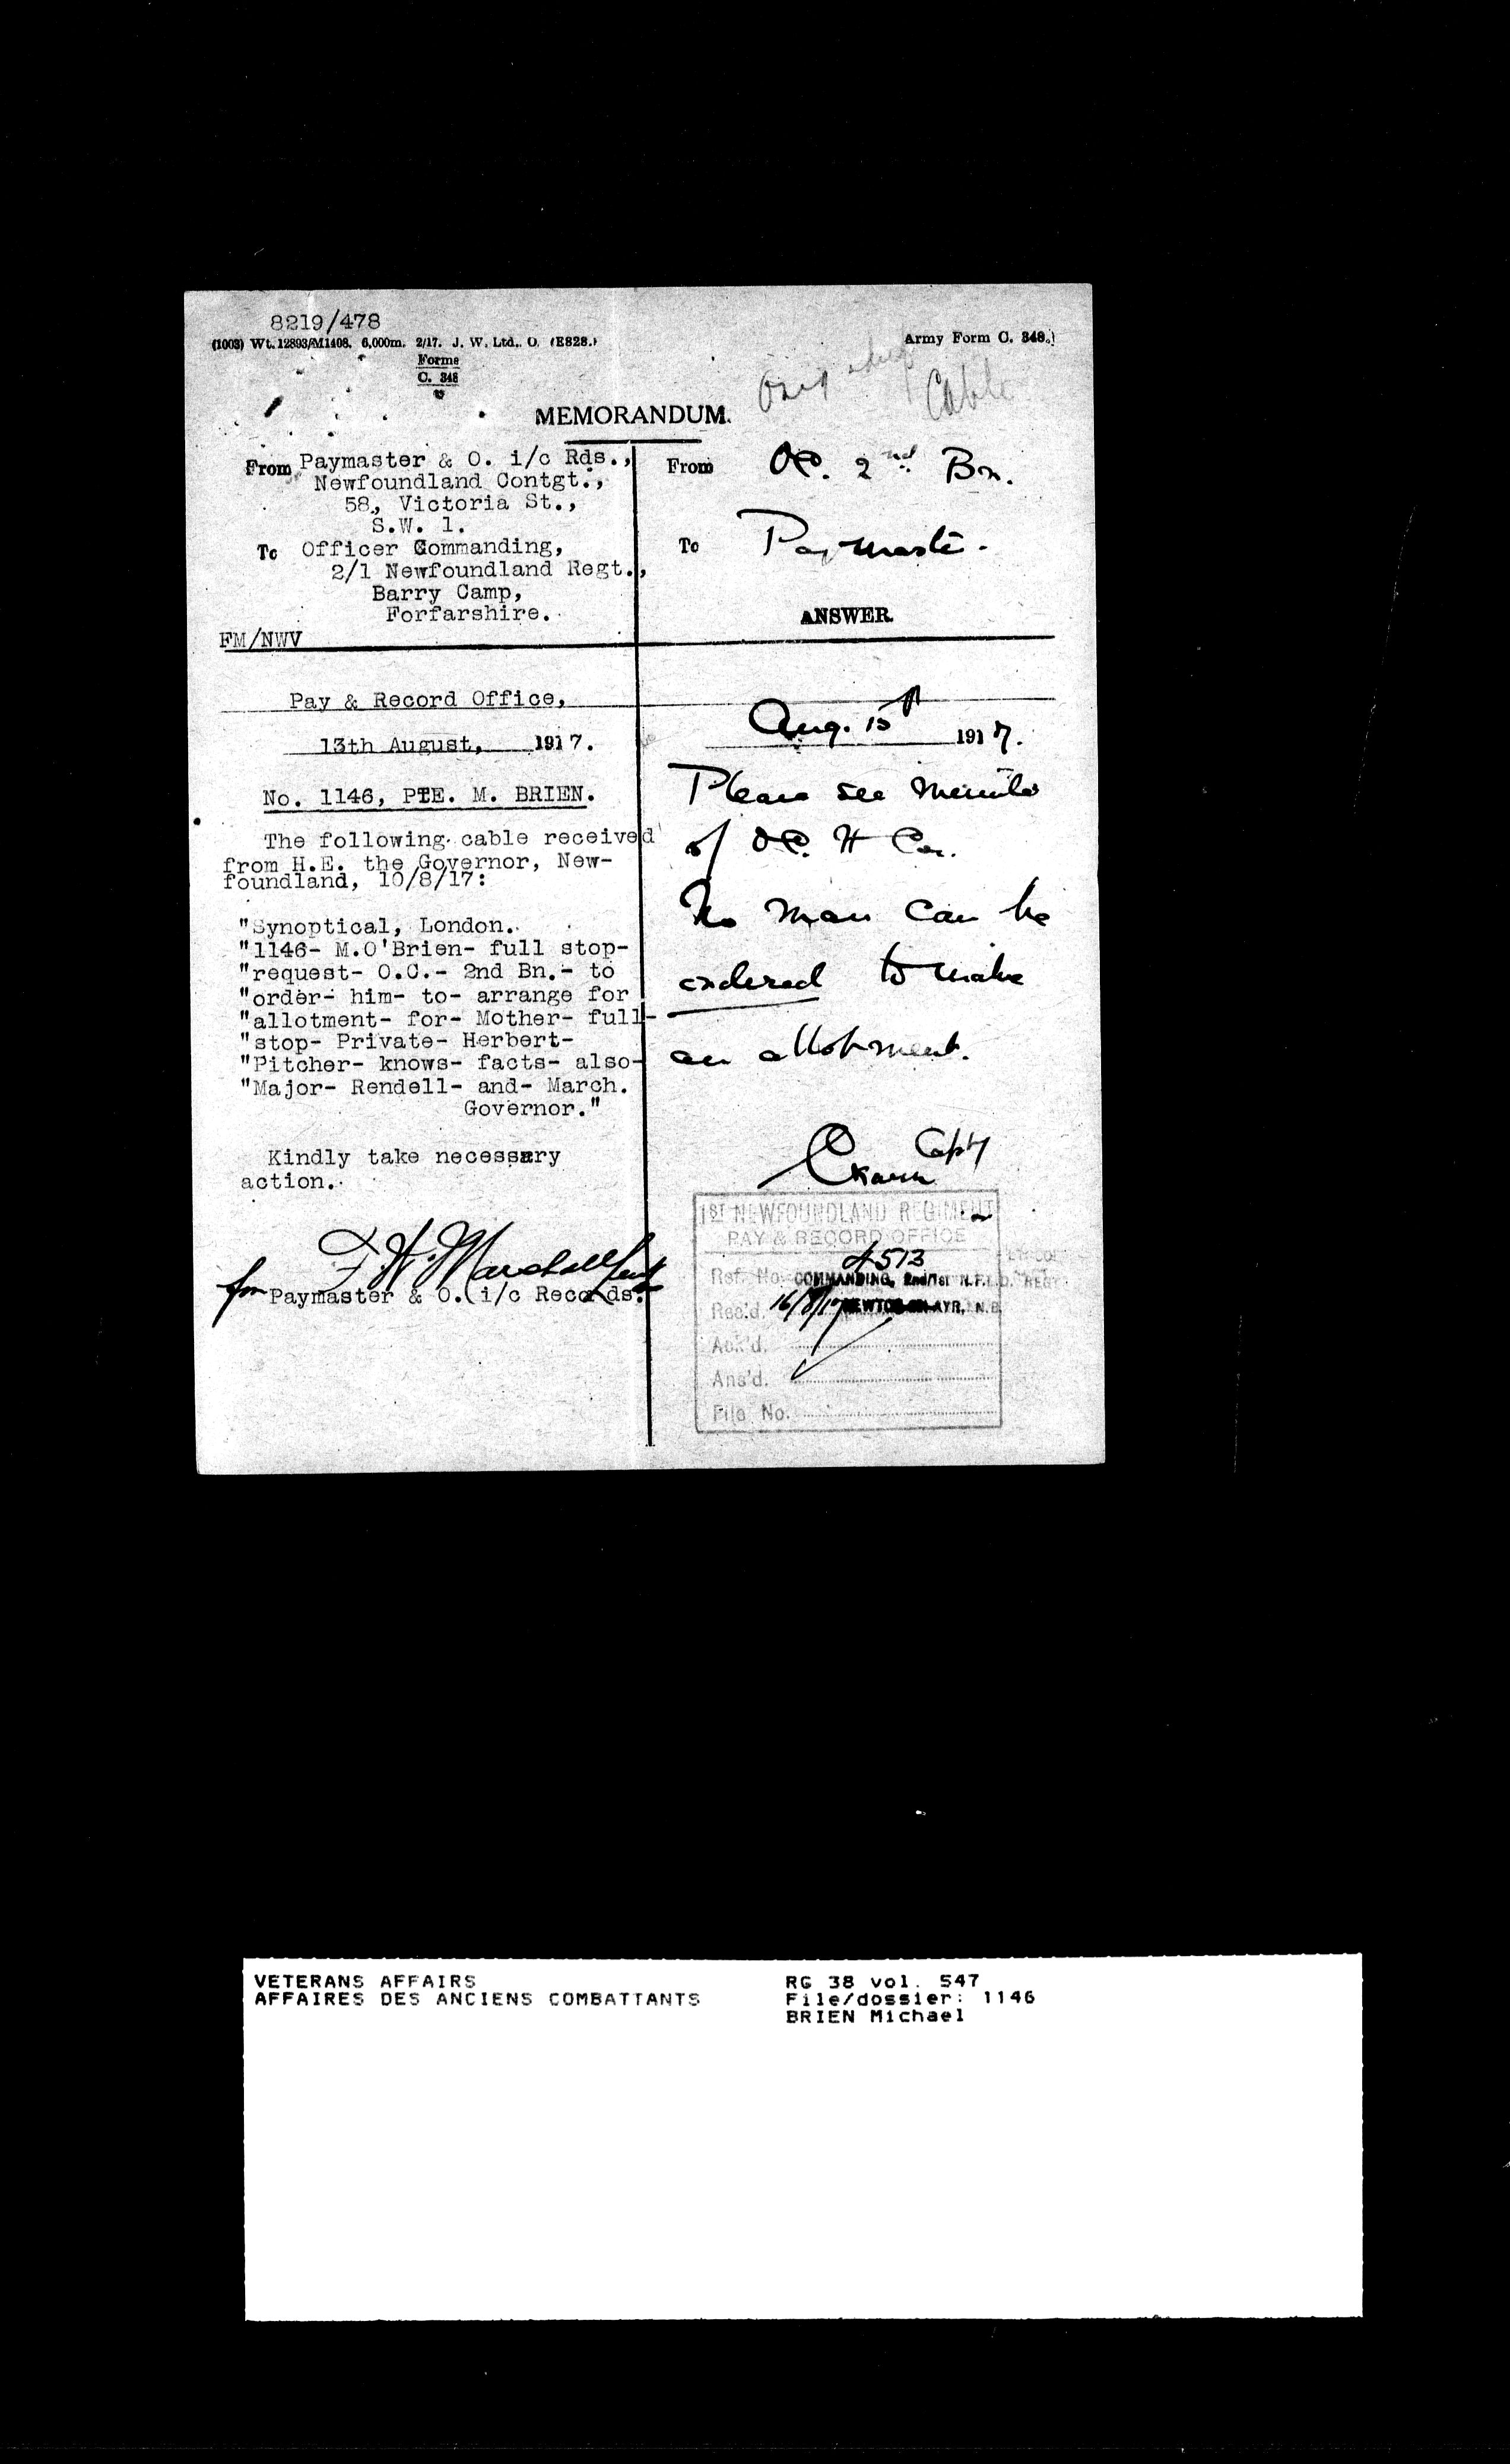 8219/478
(1003) Wt. 12893/M1408. 6,000m. 2/17. J. W. Ltd., O. (E828.)
Forms
C. 348
9
Army Form C. 348.
Cable
MEMORANDUM.
From Paymaster & O. i/c Rds.,
Newfoundland Contgt.,
58, Victoria St.,
S.W. 1.
To Officer Commanding,
2/1 Newfoundland Regt.,
Barry Camp,
Forfarshire.
FM/NWV
Pay & Record Office,
13th August, 1917.
No. 1146, PTE. M. BRIEN.
The following cable received
from H.E. the Governor, New-
foundland, 10/8/17:
"Synoptical, London.
"1146- M.O'Brien- full stop-
"request- O.C.- 2nd Bn.- to
"order- him- to- arrange for
"allotment- for- Mother- full-
"stop- Private- Herbert-
"Pitcher- knows- facts- also-
"Major- Rendell- and- March.
Governor."
Kindly take necessary
action.
for F. H. Marshall Lieut
Paymaster & O. i/c Records.
From OC. 2nd Bn.
To Paymaster.
ANSWER.
Aug. 15th 1917.
Please see Minute
of OC. H Co.
No man can be
ordered to make
an allotment.
Capt
1ST NEWFOUNDLAND REGIMENT
PAY & RECORD OFFICE
Ref. No. 4513
COMMANDING, 2nd/1st N.F.L.D. REGT.
Rec'd. 16/8/17
NEWTON-ON-AYR, N.B.
Ack'd.
Ans'd.
File No.
VETERANS AFFAIRS
AFFAIRES DES ANCIENS COMBATTANTS
RG 38 vol. 547
File/dossier: 1146
BRIEN Michael